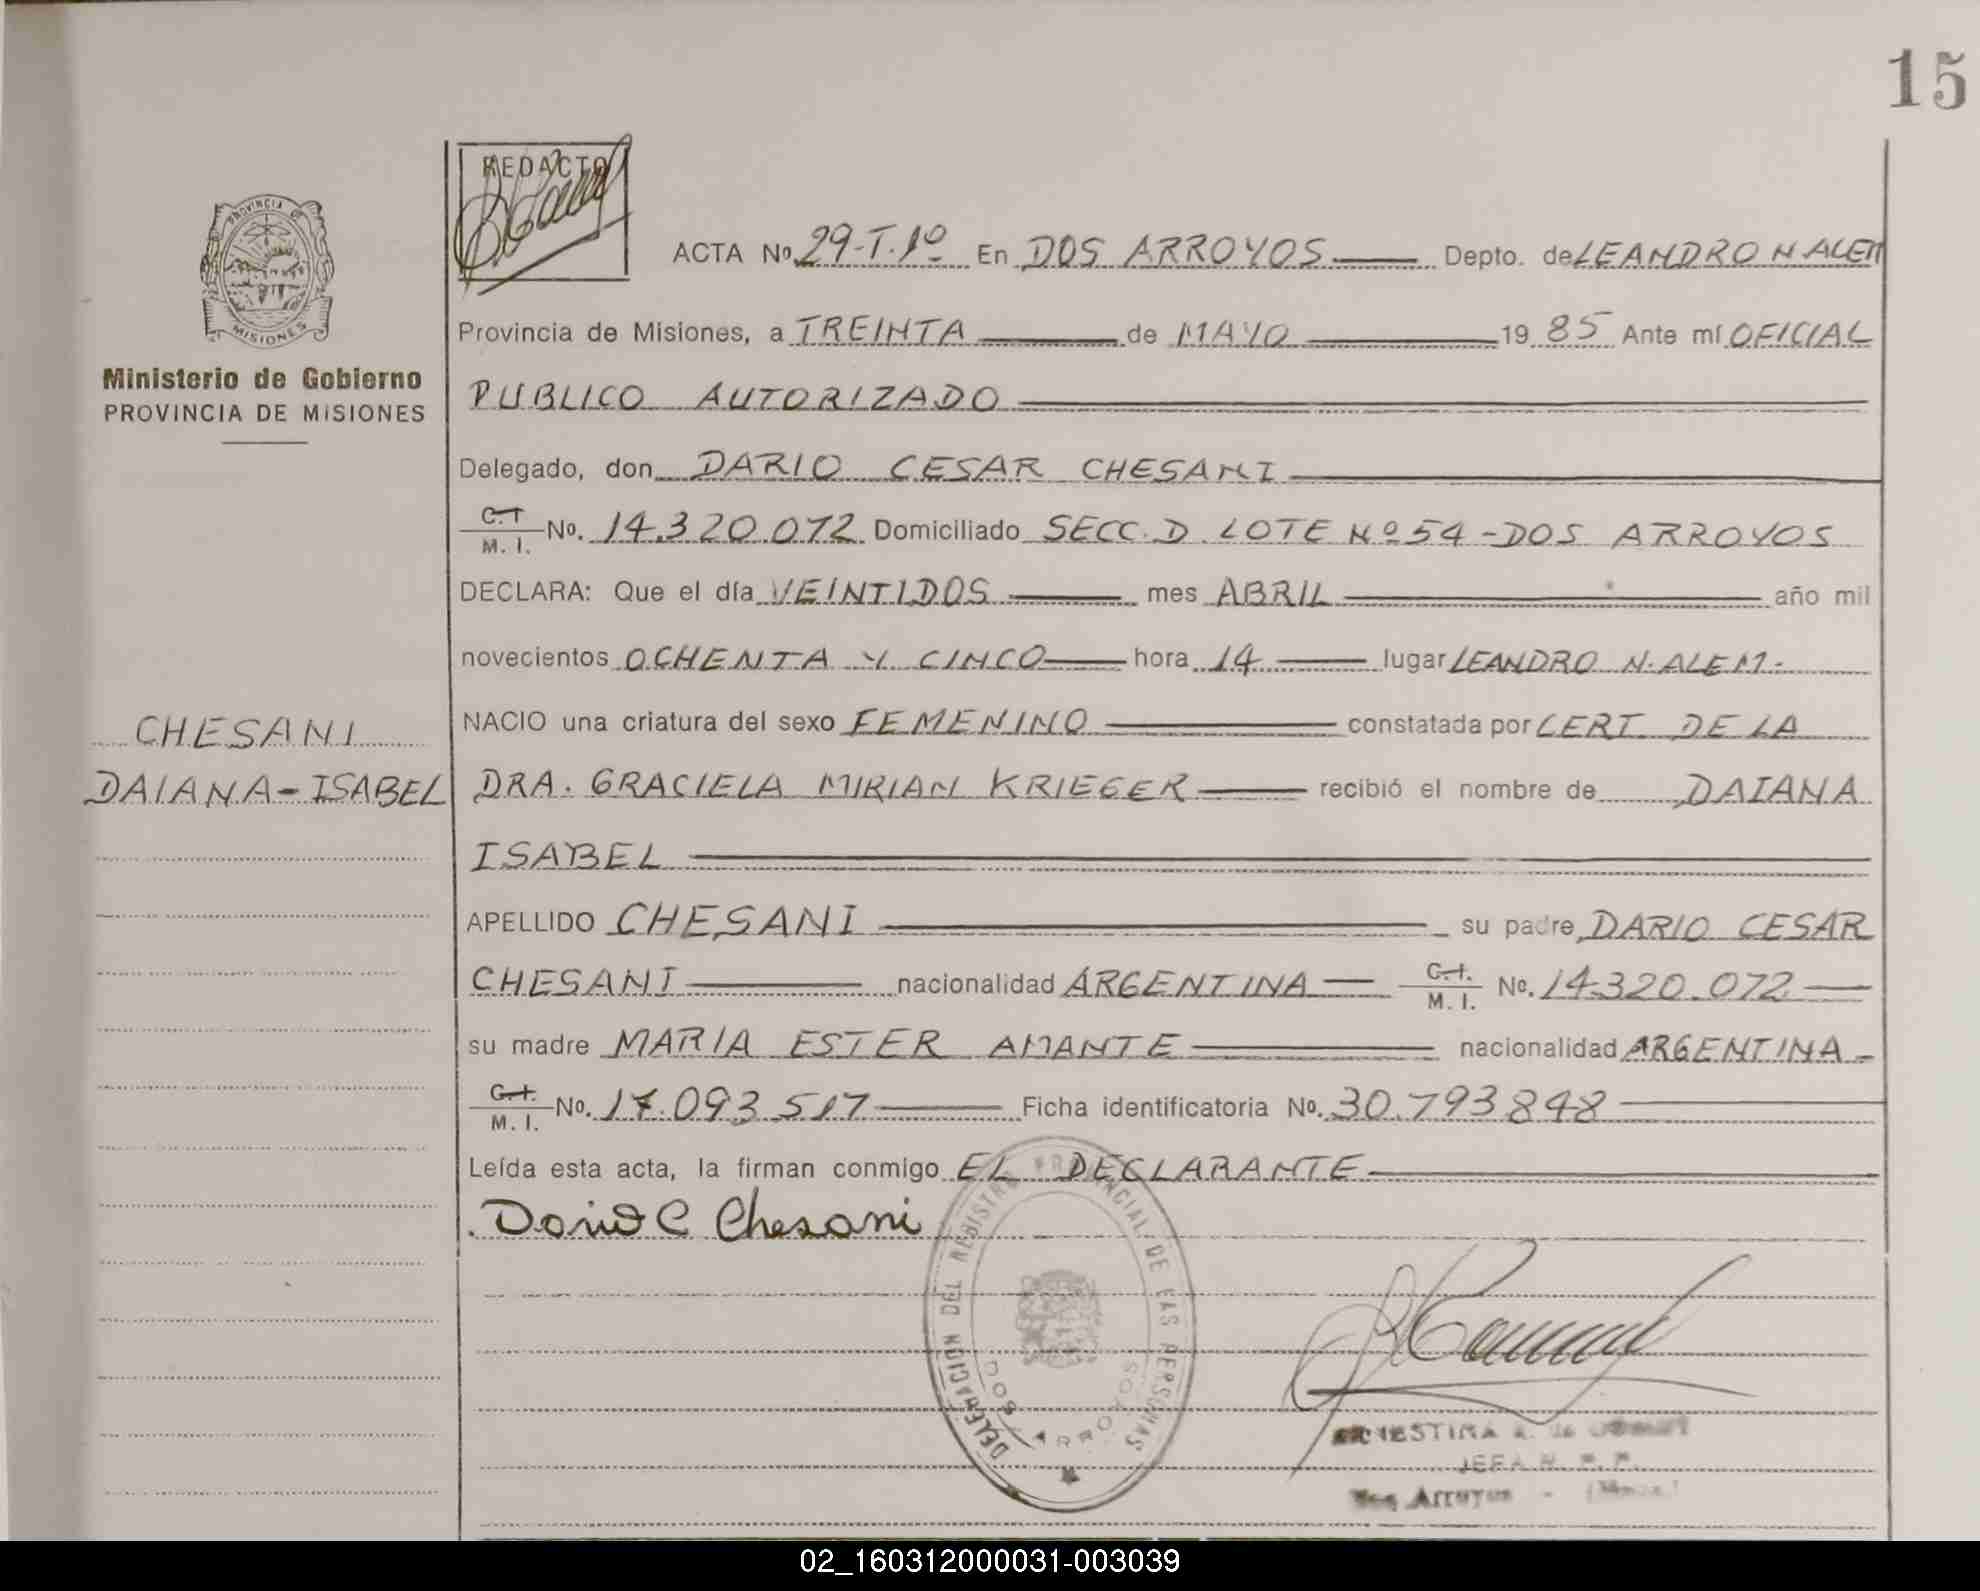 15
REDACTO
PROVINCIA DE
MISIONES
Ministerio de Gobierno
PROVINCIA DE MISIONES
CHESANI
DAIANA-ISABEL
ACTA No. 29-T.1º En DOS ARROYOS Depto. de LEANDRO N ALEM
Provincia de Misiones, a TREINTA de MAYO 19 85 Ante mí OFICIAL
PUBLICO AUTORIZADO
Delegado, don DARIO CESAR CHESANI
C.I. M. I. No. 14.320.072 Domiciliado SECC. D. LOTE Nº 54 - DOS ARROYOS
DECLARA: Que el día VEINTIDOS mes ABRIL año mil
novecientos OCHENTA Y CINCO hora 14 lugar LEANDRO N. ALEM.
NACIO una criatura del sexo FEMENINO constatada por CERT. DE LA
DRA. GRACIELA MIRIAN KRIEGER recibió el nombre de DAIANA
ISABEL
APELLIDO CHESANI su padre DARIO CESAR
CHESANI nacionalidad ARGENTINA C.I. M. I. No. 14.320.072
su madre MARIA ESTER AMANTE nacionalidad ARGENTINA
C.I. M. I. No. 17.093.517 Ficha identificatoria No. 30.793.848
Leída esta acta, la firman conmigo EL DECLARANTE
Dario C Chesani
DELEGACION DEL REGISTRO PROVINCIAL DE LAS PERSONAS
DOS ARROYOS
ERNESTINA R. de
JEFA R. P. P.
Dos Arroyos - (Mnes.)
02_160312000031-003039